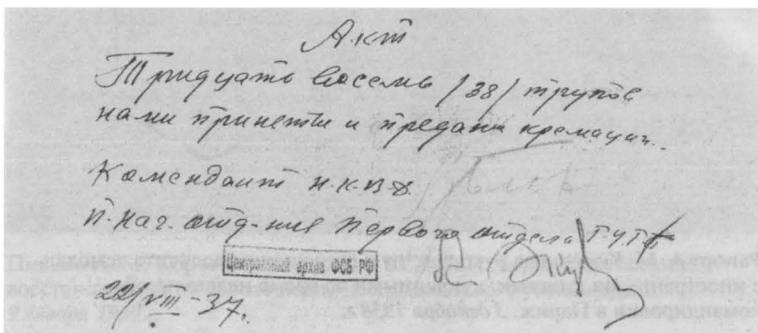 Акт
Тридцать восемь /38/ трупов
нами приняты и преданы кремации.
Комендант Н.К.В.Д.
П. нач. отд-ния Первого отдела Г.У.Г.Б.
Центральный архив ФСБ РФ
22/VIII-37.